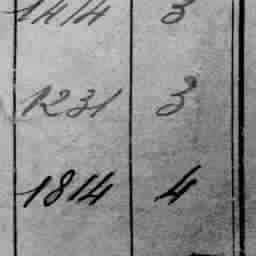 1414 3
1231 3
1814 4